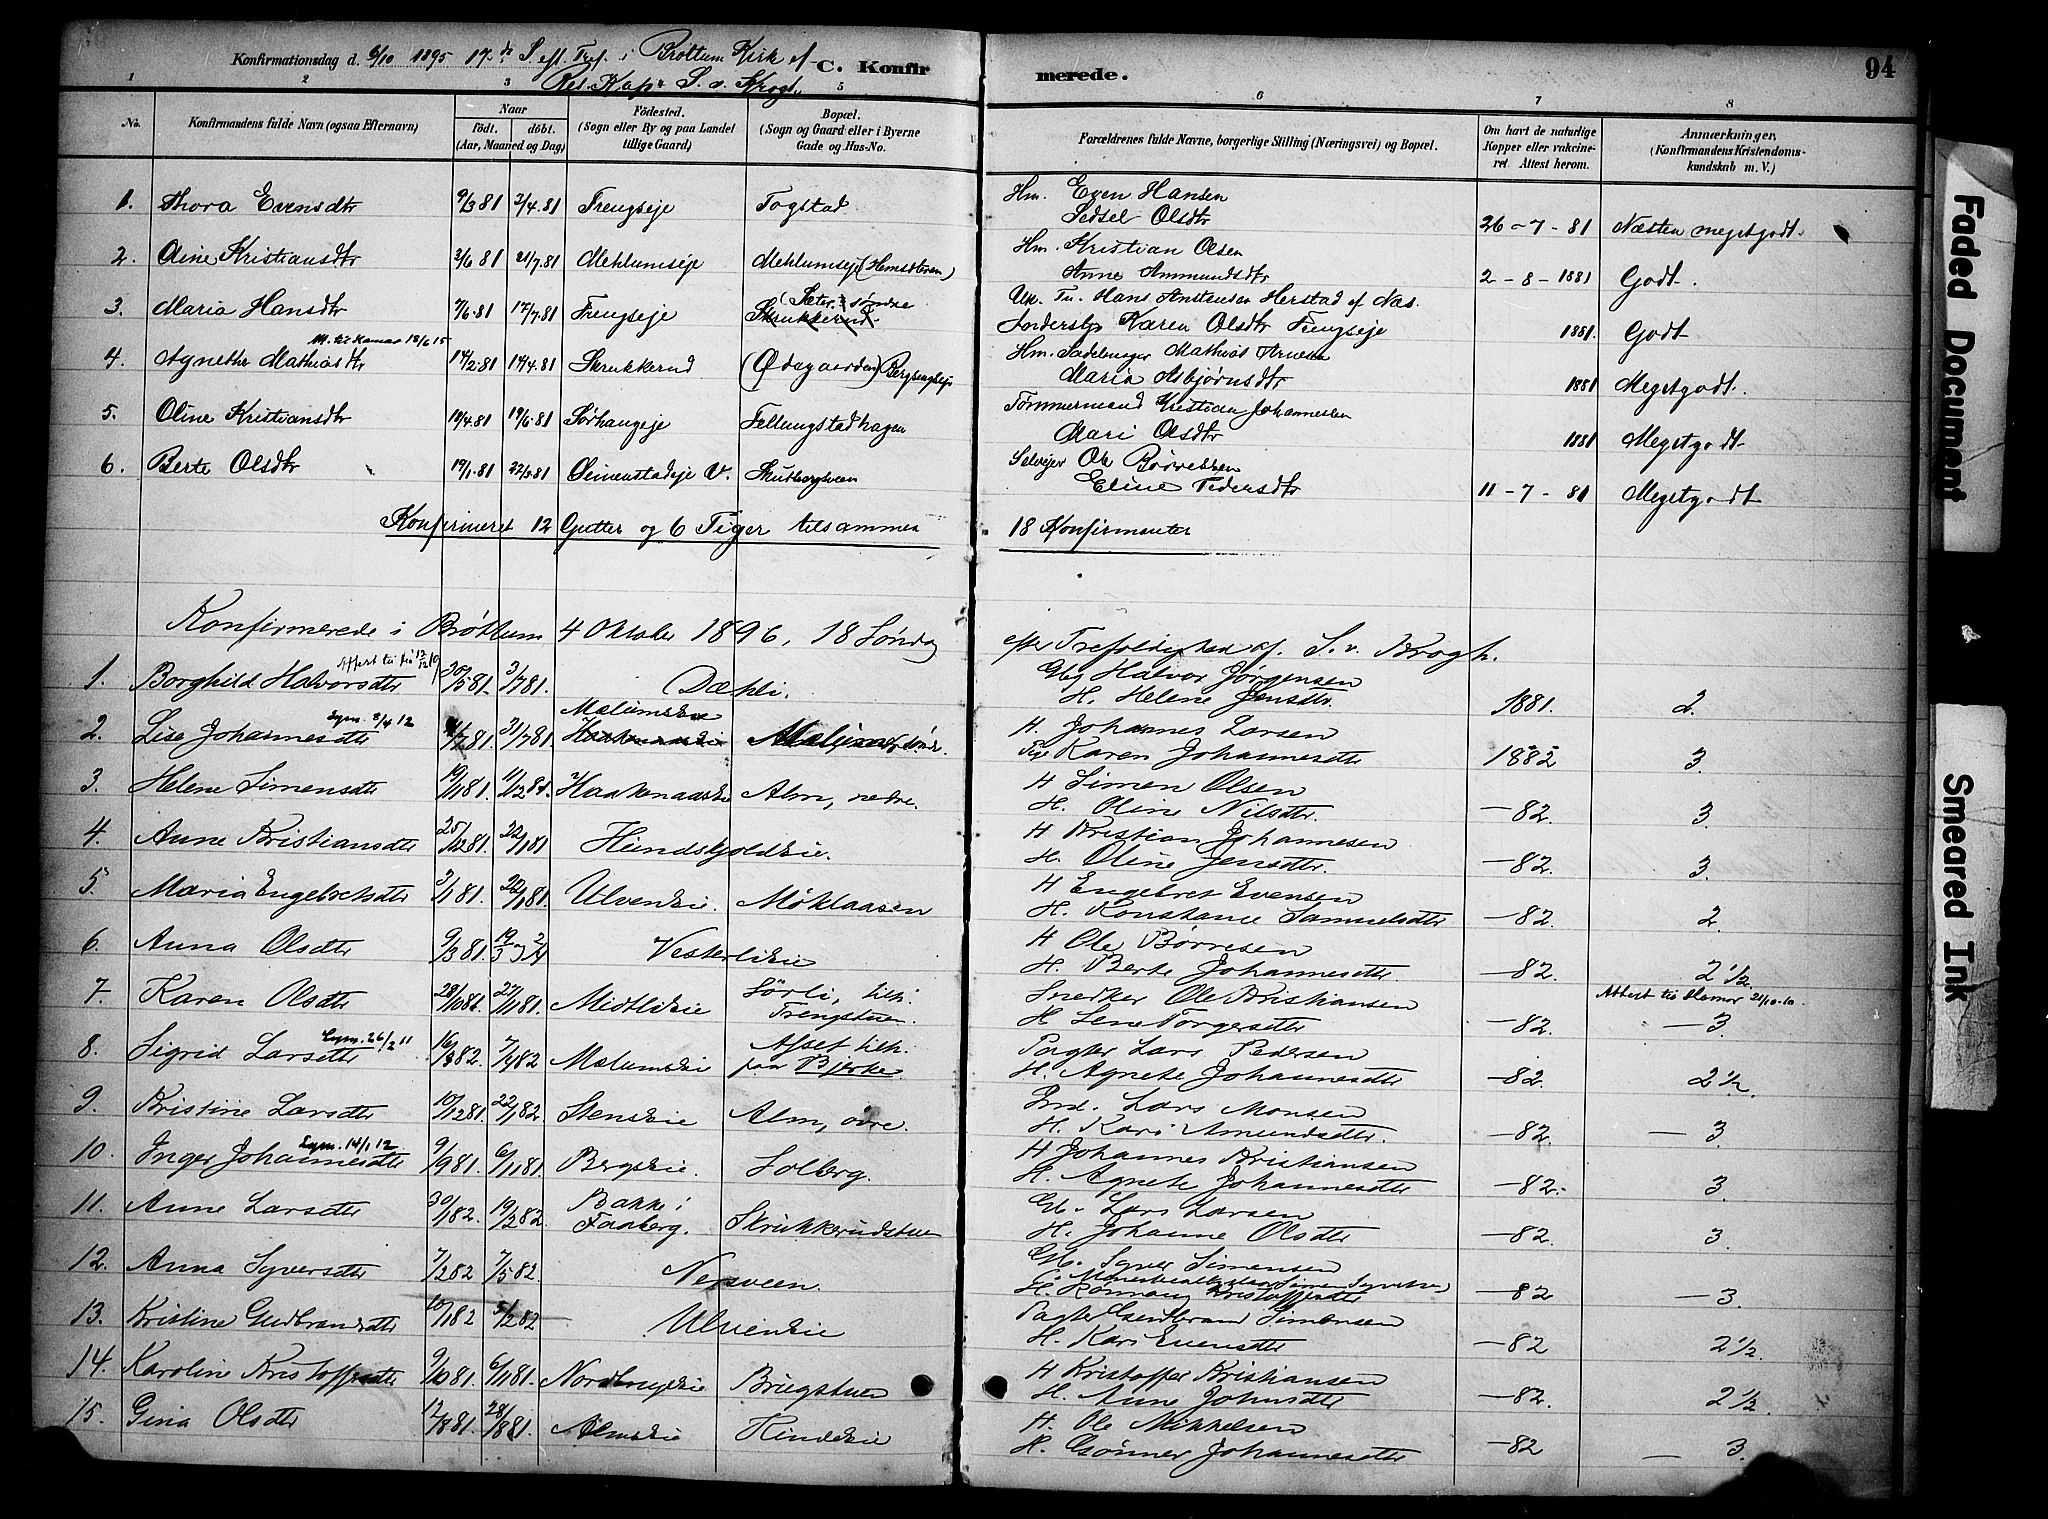 Konfirmationsdag d. 6/10 1895 17de S. eft. Tref. i Brøttum Kirk af C. Konfirmerede. 94
Res. Kap. S. v. Krogh
1 2 3 5 6 7 8
No. Konfirmandens fulde Navn (ogsaa Efternavn) Naar födt. döbt. (Aar, Maaned og Dag) Födested. (Sogn eller By og paa Landet tillige Gaard) Bopæl. (Sogn og Gaard eller i Byerne Gade og Hus-No. Forældrenes fulde Navne, borgerlige Stilling (Næringsvei) og Bopæl. Om havt de naturlige Kopper eller vakcineret. Attest herom. Anmærkninger. (Konfirmandens Kristendomskundskab m. V.)
1. Thora Evensdtr 9/3 81 3/4 81 Frengseje Fogstad Hm. Even Hansen
Sidsel Olsdtr 26-7-81 Næsten megetgodt.
2. Oline Kristiansdtr 2/6 81 21/7 81 Mehlumseje Mehlumseje Hm. Kristian Olsen
Anne Ammundsdtr 2-8-1881 Godt.
3. Maria Hansdtr 7/6 81 17/7 81 Frengseje (Sæter søndre Skrukkerud Hans Anstensen Herstad af Næs.
Karen Olsdtr Frengseje 1881. Godt
4. Agnethe Mathiasdtr 14/2 81 14/4 81 Skrukkerud (Ødegaarden) Bergsengseje Hm. Sadelmager Mathias Arnesen
Maria Asbjørnsdtr 1881 Megetgodt.
5. Oline Kristiansdtr 10/4 81 19/6 81 Sørhaugeje Fellungstadhagen Tømmermand Kristian Johannessen
Mari Olsdtr 1881 Megetgodt
6. Berte Olsdtr 19/1 81 22/5 81 Simenstadeje V. Selvejer Ole Børresen
Eline Pedersdtr 11-7-81 Megetgodt
Konfirmeret 12 Gutter og 6 Piger tilsammen 18 Konfirmanter
Konfirmerede i Brøttum 4 Oktober 1896, 18 Søndag efter Trefoldighed af S. v. Krogh.
1. Borghild Halvorsdtr 30/5 81. 3/7 81. Dæhli. Gbg Halvor Jørgensen
H. Helene Jensdtr. 1881. 2.
2. Lise Johannesdtr 31/7 81 Mælumseie H. Johannes Larsen
Karen Johannesdtr 1882 3.
3. Helene Simensdtr 19/11 81 11/12 81 Haakenaaseie Alm, nedre. H Simen Olsen
H. Oline Nilsdtr. -82. 3.
4. Anne Kristiansdtr 25/10 81. 22/11 81 Hindskjoldeie. H Kristian Johannesen
H. Oline Jensdtr. -82. 3.
5. Maria Engebretsdtr 2/11 81 22/11 81. Ulveneie. Møklaasen H Engebret Evensen
H. Konstance Samuelsdtr -82 2.
6. Anna Olsdtr 9/3 81. Vesterlieie H Ole Børresen
H. Berte Johannesdtr -82. 2 1/2.
7. Karen Olsdtr 22/11 81. Midtlieie Sørli, tilh. Frengstuen. Snedker Ole Kristiansen
H Lene Torgersdtr -82. -3. Attest til Hamar 21/10-10.
8. Sigrid Larsdtr Exm. 26/2 11 16/3 82. 7/4 82 Mælumseie Afset tilh. paa Bjerke. Pagter Lars Pedersen
H. Agnete Johannesdtr -82. 2 1/2.
9. Kristine Larsdtr 10/12 81. 22/1 82 Stenseie Alm, øvre. Lars Monsen
H. Kari Amundsdtr. -82. -3.
10. Inger Johannesdtr Exm. 14/1 12 9/9 81. 6/11 81. Bergseie Solberg. H Johannes Kristiansen
H. Agnete Johannesdtr -82. 3.
11. Anne Larsdtr 30/1 82. 19/3 82. Bakke i Faaberg. Skrukkerudstuen Gbr. Lars Larsen
H. Johanne Olsdtr -82. 3.
12. Anna Syversdtr 7/2 82 7/5 82. Nersveen. Syver Simensen
H. Rønnaug Kristoffersdtr -82 -3.
13. Kristine Gudbrandsdtr 10/1 82 5/2 82 Ulveneie Pagter Gudbrand Simensen
H. Kari Evensdtr -82 2 1/2.
14. Karoline Kristoffersdtr 9/10 81. 6/11 81. Nordhugeie Brugstuen H Kristoffer Kristiansen
H. Anne Johnsdtr -82. 2 1/2.
15. Gina Olsdtr 12/8 81. 28/8 81. Almseie Hindeie H. Ole Mikkelsen
H. Gønner Johannesdtr -82 -3.
Faded Document
Smeared Ink